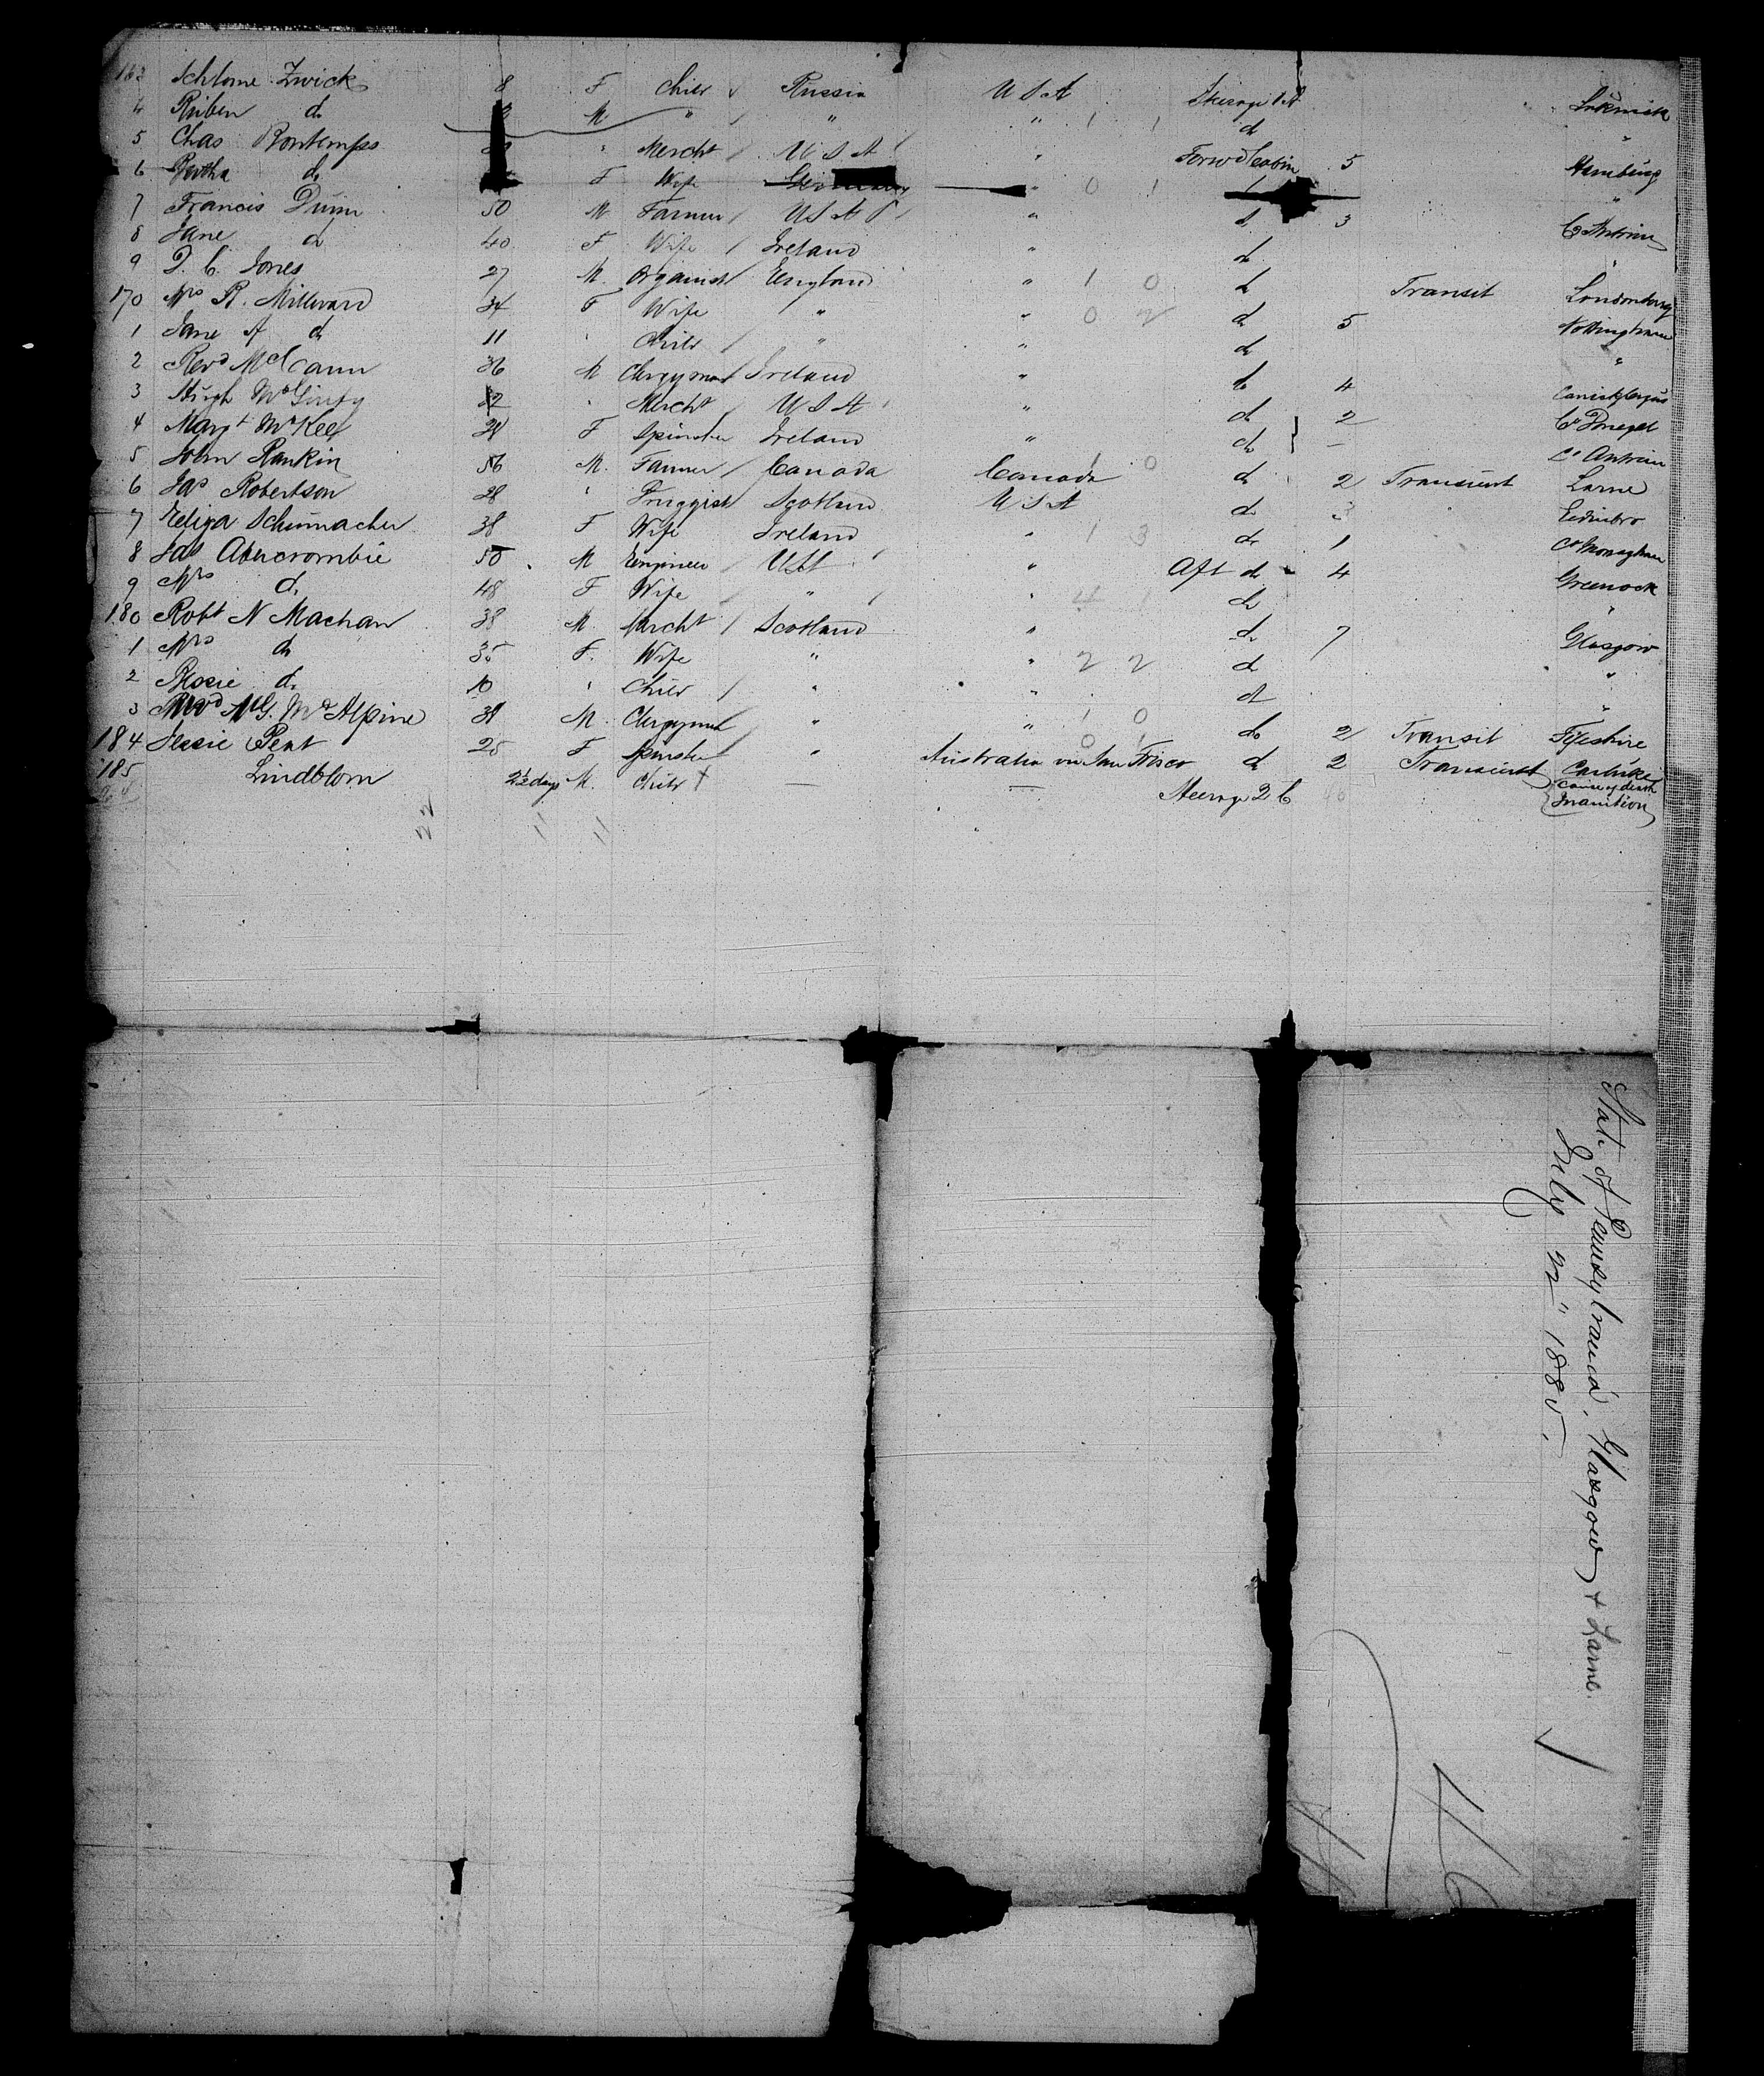 163 Schlome Zwick 8 F Child Russia U S A Steerage 1 A
4 Ruben do M " " " 1 1 do "
5 Chas Bontemps " Mercht U S A " Forwd Cabin 5 Hamburg
6 Bertha do F Wife Germany " 0 1 "
7 Francis Quinn 50 M Farmer U S A " do 3 Co Antrim
8 Jane do 40 F Wife Ireland " do "
9 D. C. Jones 27 M. Organist England " 1 0 do Transit Londonderry
170 Mrs R. Millward 34 F Wife " " 0 2 do 5 Nottingham
1 Jane A do 11 " Child " " do "
2 Revd McCann 36 M Clergyman Ireland " do 4 Carrickfergus
3 Hugh McGinty 32 " Mercht U S A " do 2 Co Donegal
4 Margt McKee 24 F Spinster Ireland " do - Co Antrim
5 John Rankin 56 M. Farmer Canada Canada 1 0 do 2 Transient Larne
6 Jas Robertson 28 " Druggist Scotland U S A do 3 Edinbro
7 Eliza Schumacher 38 F Wife Ireland " 1 3 do 1 Co Monaghan
8 Jas Abercrombie 50 M Engineer USA " Aft do 4 Greenock
9 Mrs do 48 F Wife " " 4 1 do "
180 Robt N Machan 38 M. Mercht Scotland " do 7 Glasgow
1 Mrs do 35 F. Wife " " 2 2 do "
2 Bessie do 10 " Child " " do "
3 Revd McG. McAlpine 38 M. Clergyman " " 1 0 do 2 Transit Fifeshire
184 Jessie Peat 25 F Spinster " Australia via San Frisco 0 1 do 2 Transient Carluke
185 Lindblom 2½ days M. Child + — — Steerage 2 C { Cause of death Inanition
22 11 11
State of Pennsylvania, Glasgow & Larne.
July 22" 1885.
46